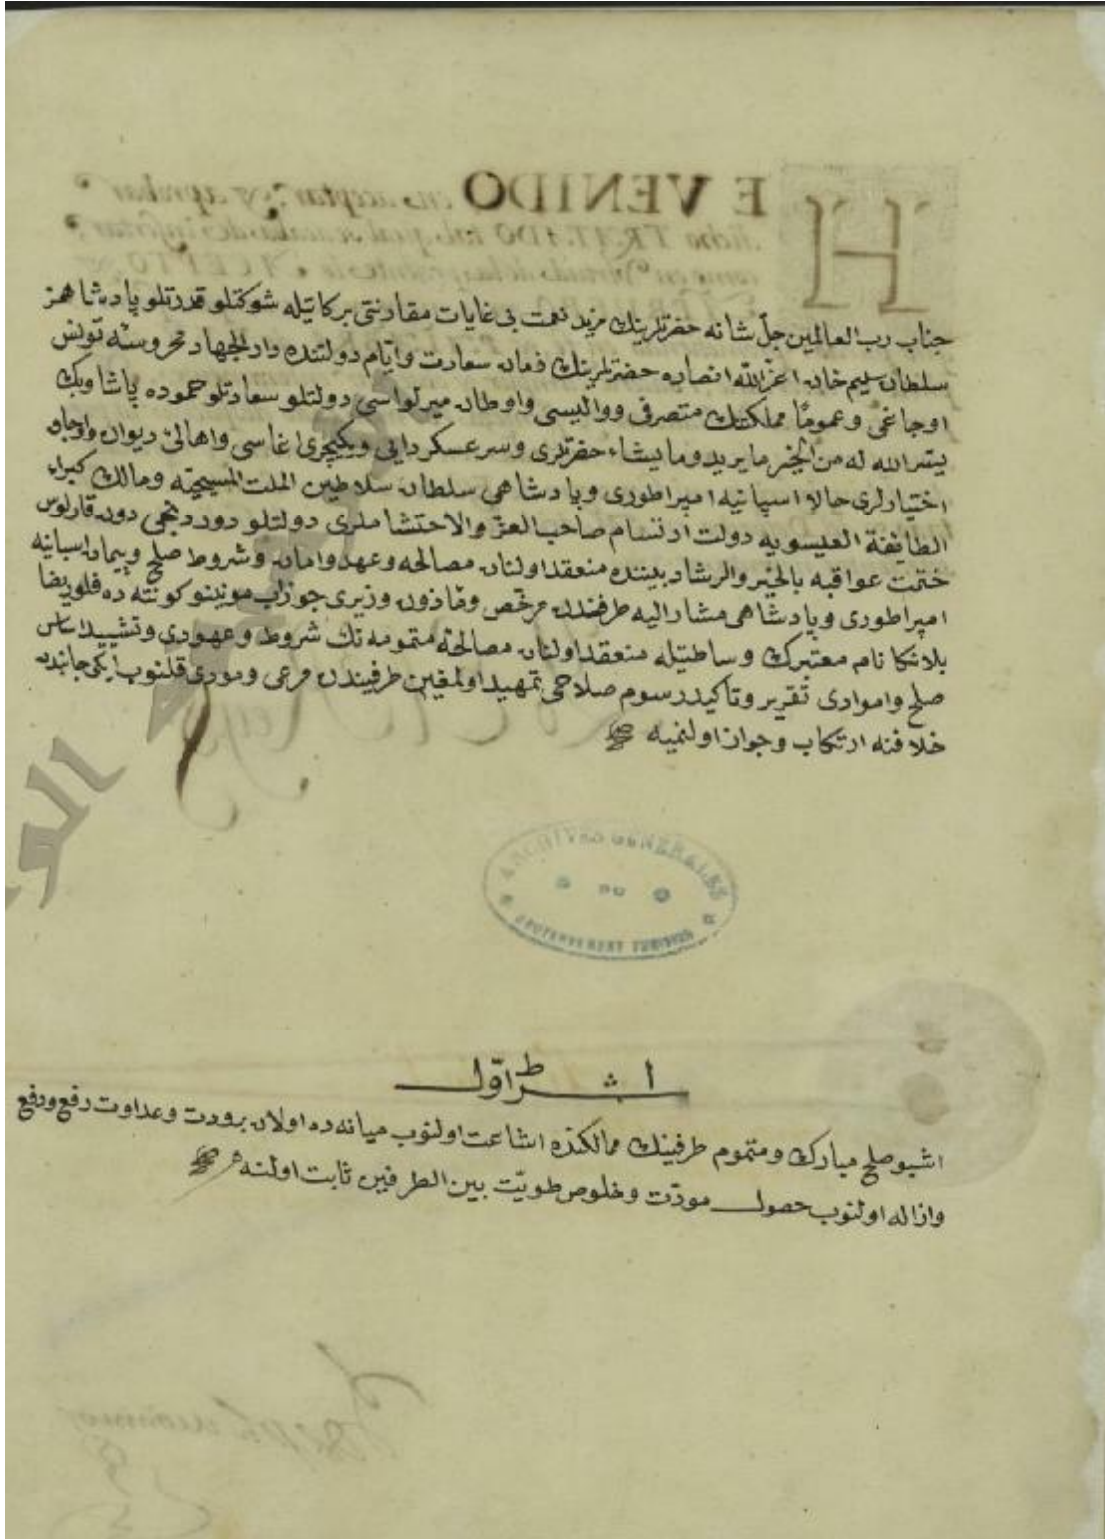 جناب رب العالمين جلّ شانه حضرتلرينك مزيد نعمت بى غايات مقارنتى بركاتيله شوكتلو قدرتلو پادشاهمز
سلطان سليم خان اعزّ الله انصاره حضرتلرينك زمان سعادت وايّام دولتنده دار الجهاد محروسهٔ تونس
اوجاغى وعموماً مملكتنك متصرفى ووالىسى واوطان ميرلواسى دولتلو سعادتلو حموده پاشا وبك
يسّر الله له من الخير ما يريد وما يشاء حضرتلرى وسر عسكر دايى ويكيچرى اغاسى واهالئ ديوان واوجاق
اختيارلرى حالا اسپانيه امپراطورى وپادشاهى سلطان سلاطين الملت المسيحيّه ومالك كبراء
الطايفة العيسويه دولت ارتسام صاحب العزّ والاحتشاملرى دولتلو دوردنجى دون قارلوس
ختمت عواقبه بالخير والرشاد بيننده منعقد اولنان مصالحه وعهد وامان وشروط صلح وپيمان اسبانيه
امپراطورى وپادشاهى مشار اليه طرفندن مرخّص ومأذون وزيرى جوزاب مونينو كونته ده فلوريضا
بلانكا نام معتبرك وساطتيله منعقد اولنان مصالحهٔ متمومه نك شروط وعهودى وتشييد اساس
صلح وامـوادى تقرير وتأكيد رسوم صلاحى تمهيد اولمغين طرفيندن مرعى ومودى قلنوب ايكى جانبدن
خلافنه ارتكاب وجواز اولنميه
ARCHIVES GENERALES
DU
GOUVERNEMENT TUNISIEN
الشرط اوّل
اشبو صلح مبارك ومتموم طرفينك ممالكنده اشاعت اولنوب ميانه ده اولان برودت وعداوت رفع ودفع
وازاله اولنوب حصول مودّت وخلوص طويّت بين الطرفين ثابت اولنه